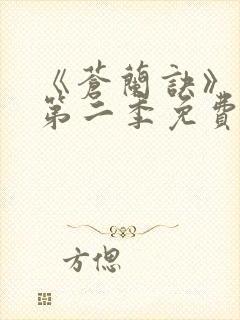 《蒼蘭訣》
第二季免費
方偲